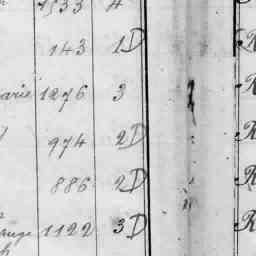 1533 4
143 1D R
arie 1276 3 R
974 2D R
886 2D R
ange 1122 3D R